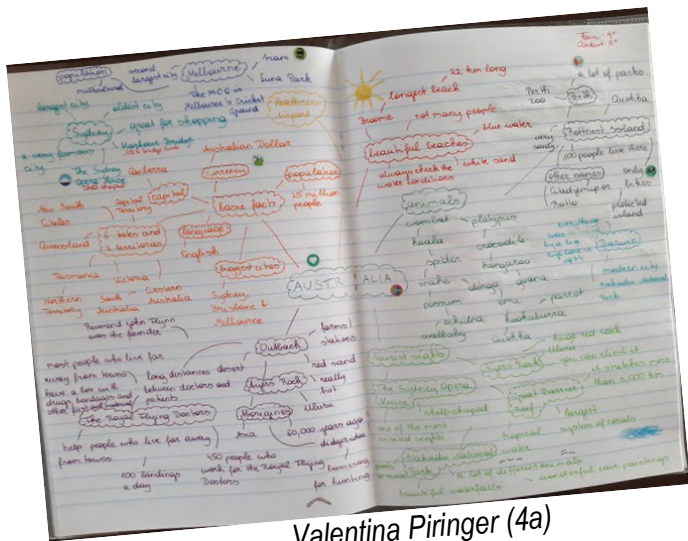 population
second largest city
Melbourne
tram
Luna Park
multicultural
The MCG is Melbourne's Cricket Ground
largest city
oldest city
Sydney
great for shopping
a very famous city
Harbour Bridge
The Sydney Opera House
shell shaped
Australian Dollar
currency
population
25 million people
Canberra
capital
Capital Territory
basic facts
New South Wales
6 states and 2 territories
language
English
Queensland
Tasmania
Victoria
Northern Territory
South Australia
Western Australia
biggest cities
Sydney, Brisbane & Melbourne
AUSTRALIA
Reverend John Flynn was the founder
most people who live far away from towns have a box with drugs, bandages and other
long distances between doctors and patients
The Royal Flying Doctors
help people who live far away from towns
100 landings a day
450 people who work for the Royal Flying Doctors
Outback
farms/stations
desert
red sand
really hot
Ayers Rock
Uluru
Aborigines
Asia
60,000 years ago
didgeridoo
boomerang for hunting
22 km long
longest beach
Broome
not many people
beautiful beaches
blue water
white sand
always check the water conditions
a lot of parks
Perth Zoo
Perth
Quokka
Rottnest Island
very sandy
100 people live there
other names
Wadjemup
Rotto
only bikes
protected island
animals
wombat
platypus
koala
crocodile
spider
kangaroo
snake
dingo
goanna
possum
emu
parrot
echidna
kookaburra
wallaby
Quokka
by a big
Darwin
modern city
Kakadu National Park
tourist sights
Ayers Rock
huge red rock
Uluru
you can climb it
The Sydney Opera House
shell-shaped
one of the most visited sights
Great Barrier Reef
it stretches more than 2,000 km
largest system of corals
tropical water
Kakadu National Park
a lot of different animals
wonderful cave paintings
beautiful waterfalls
Valentina Piringer (4a)